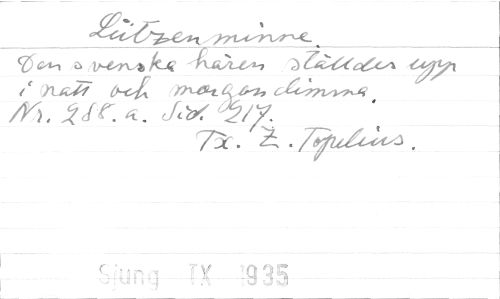 Lützenminne.
Den svenska hären ställdes upp
i natt och morgondimma.
Nr. 288.a. Sid. 217.
Tx. Z. Topelius.
Sjung TX 1935